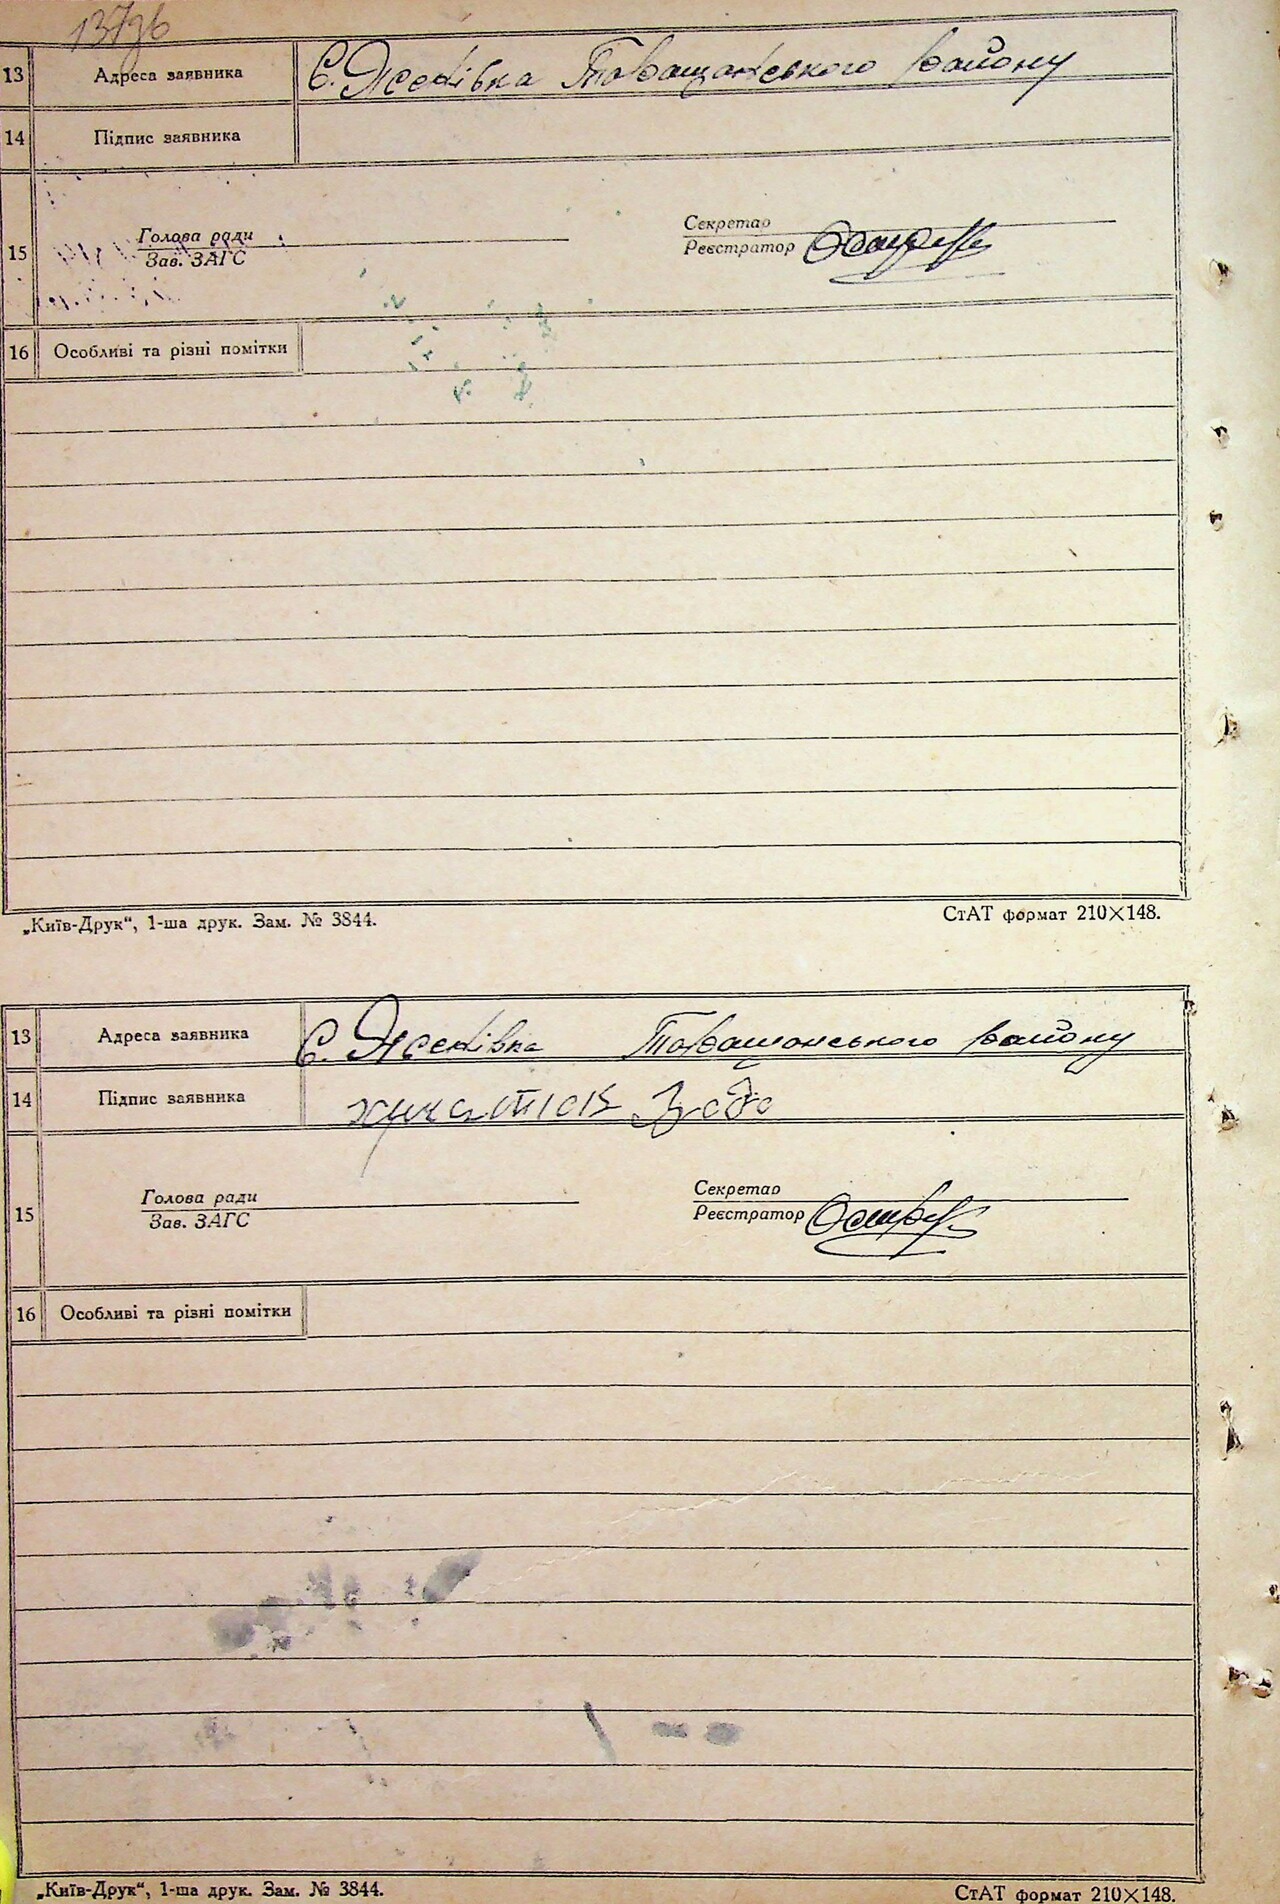 137зв
13 Адреса заявника С. Яснівка Таращанського району
14 Підпис заявника
15 Голова ради Секретар
Зав. ЗАГС Реєстратор
16 Особливі та різні помітки
„Київ-Друк“, 1-ша друк. Зам. № 3844. СтАТ формат 210×148.
13 Адреса заявника С. Таращанського району
14 Підпис заявника
15 Голова ради Секретар
Зав. ЗАГС Реєстратор
16 Особливі та різні помітки
„Київ-Друк“, 1-ша друк. Зам. № 3844. СтАТ формат 210×148.